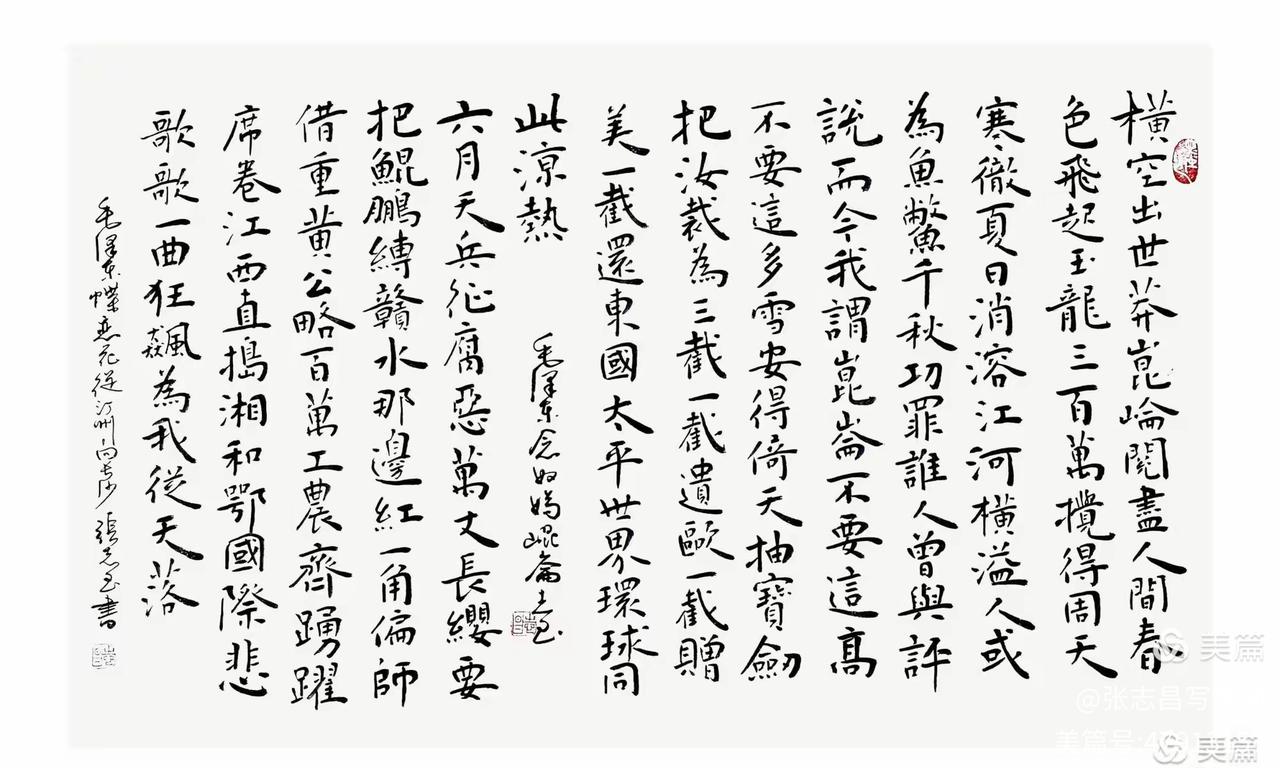 橫空出世莽崑崘閱盡人間春
色飛起玉龍三百萬攪得周天
寒徹夏日消溶江河橫溢人或
為魚鱉千秋功罪誰人曾與評
說而今我謂崑崙不要這高
不要這多雪安得倚天抽寶劒
把汝裁為三截一截遺歐一截贈
美一截還東國太平世界環球同
此涼熱
毛澤东念奴嬌崐崙
六月天兵征腐惡萬丈長纓要
把鯤鵬縛贛水那邊紅一角偏師
借重黃公略百萬工農齊踴躍
席卷江西直搗湘和鄂國際悲
歌歌一曲狂飆為我從天落
毛澤东蝶恋花從汀州向长沙 張志玉書
美篇
@张志昌写
美篇号:
美篇